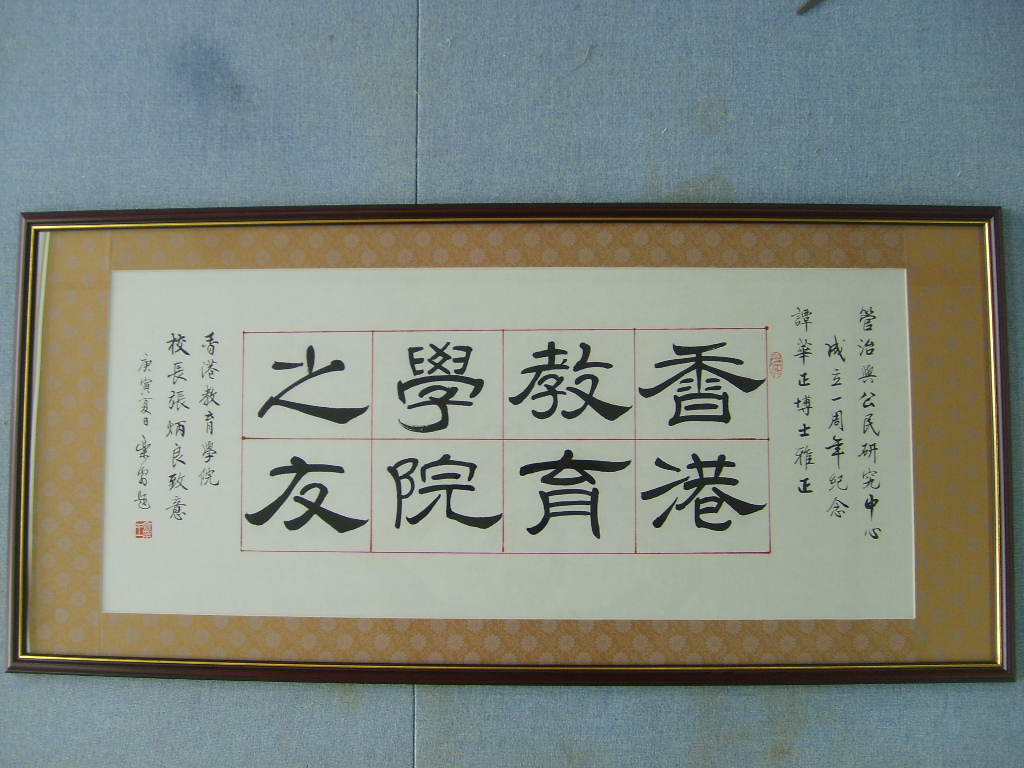 管治與公民研究中心
成立一周年紀念
譚華正博士雅正
香港
教育
學院
之友
香港教育學院
校長張炳良致意
庚寅夏日